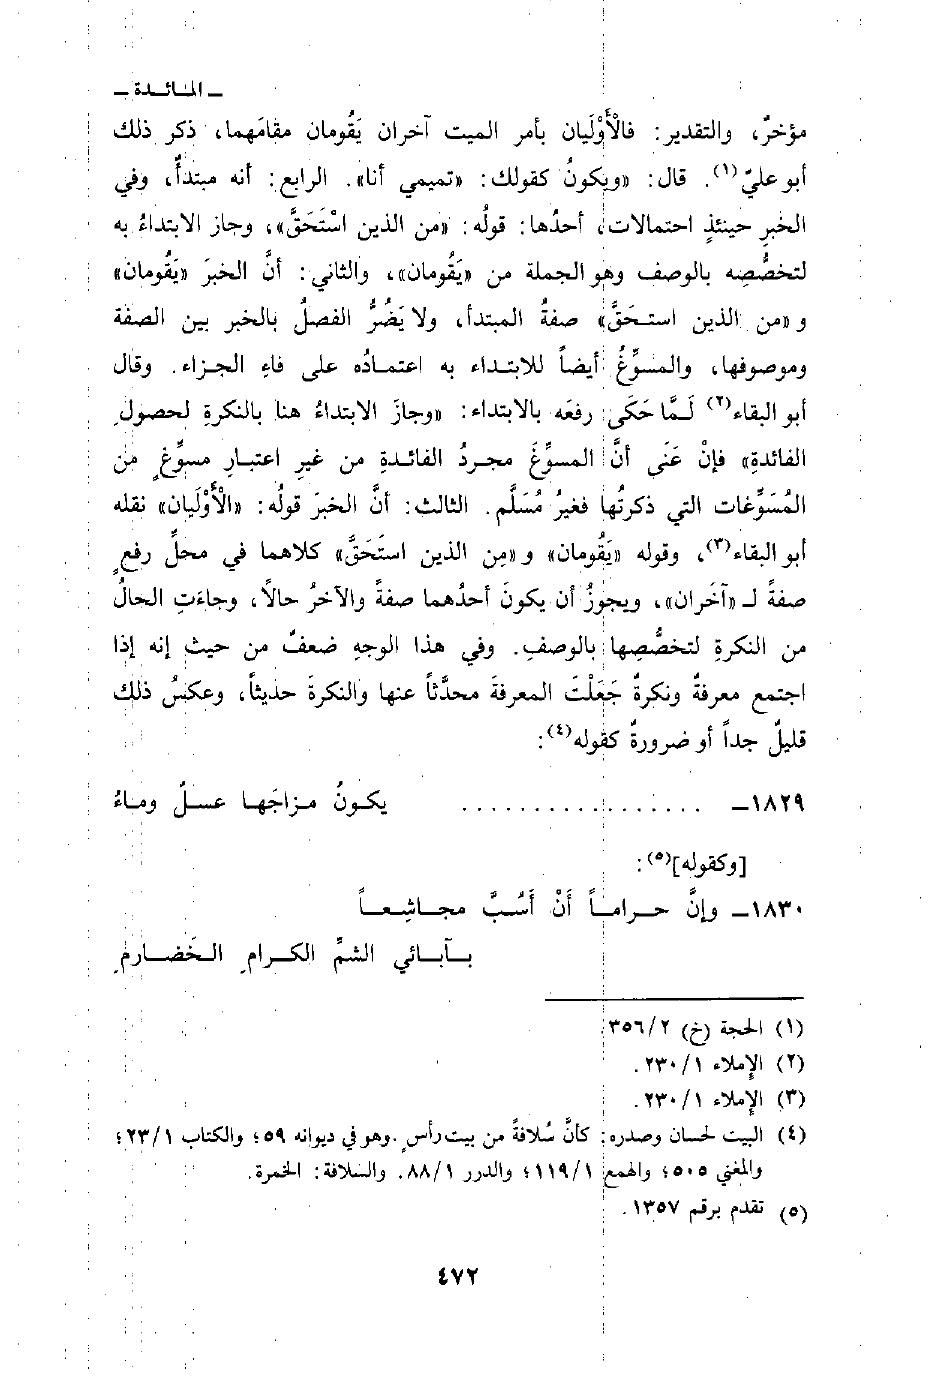 ـ المائدة ـ
مؤخرٌ، والتقدير: فالأَوْلَيان بأمر الميت آخران يَقُومان مقامَهما، ذكر ذلك
أبو عليّ(١). قال: «ويكونُ كقولك: «تميمي أنا». الرابع: أنه مبتدأٌ، وفي
الخبرِ حينئذٍ احتمالات، أحدُها: قولُه: «من الذين اسْتَحَقَّ»، وجاز الابتداءُ به
لتخصُّصِه بالوصف وهو الجملة من «يَقُومان»، والثاني: أنَّ الخبرَ «يَقُومان»
و «من الذين استحَقَّ» صفةُ المبتدأ، ولا يَضُرُّ الفصلُ بالخبر بين الصفة
وموصوفها، والمسوِّغُ أيضاً للابتداء به اعتمادُه على فاءِ الجزاء. وقال
أبو البقاء(٢) لَمَّا حَكَى رفعَه بالابتداء: «وجازَ الابتداءُ هنا بالنكرةِ لحصولِ
الفائدةِ» فإنْ عَنَى أنَّ المسوِّغَ مجردُ الفائدةِ من غيرِ اعتبارِ مسوِّغٍ من
المُسَوِّغات التي ذكرتُها فغيرُ مُسَلَّم. الثالث: أنَّ الخبرَ قولُه: «الأَوْلَيان» نقله
أبو البقاء(٣)، وقوله «يَقُومان» و «مِن الذين استَحَقَّ» كلاهما في محلِّ رفعٍ
صفةً لـ «آخَران»، ويجوزُ أن يكونَ أحدُهما صفةً والآخرُ حالاً، وجاءَتِ الحالُ
من النكرةِ لتخصُّصِها بالوصفِ. وفي هذا الوجهِ ضعفٌ من حيث إنه إذا
اجتمع معرفةٌ ونكرةٌ جَعَلْتَ المعرفةَ محدَّثاً عنها والنكرةَ حديثاً، وعكسُ ذلك
قليلٌ جداً أو ضرورةٌ كقوله(٤):
١٨٢٩ـ . . . . . . . . . . . . . . . . . يكونُ مزاجَها عسلٌ وماءُ
[وكقوله](٥):
١٨٣٠ـ وإنَّ حراماً أَنْ أَسُبَّ مجاشِعاً
بآبائي الشمِّ الكرامِ الخَضارمِ
(١) الحجة (خ) ٣٥٦/٢
(٢) الإملاء ٢٣٠/١.
(٣) الإملاء ٢٣٠/١.
(٤) البيت لحسان وصدره: كأنَّ سُلافةً من بيت رأسٍ .وهو في ديوانه ٥٩؛ والكتاب ٢٣/١؛
والمغني ٥٠٥؛ والهمع ١١٩/١؛ والدرر ٨٨/١. والسلافة: الخمرة.
(٥) تقدم برقم ١٣٥٧.
٤٧٢